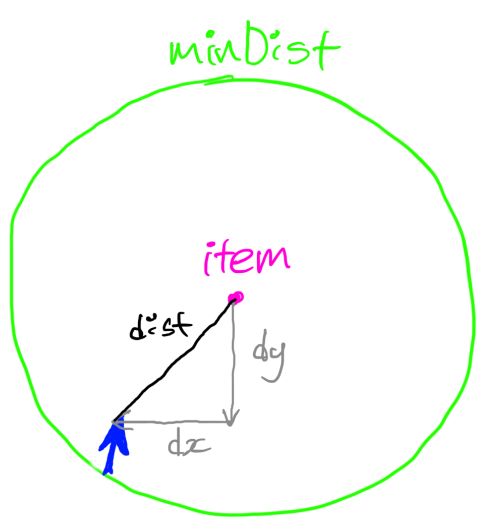 minDist
item
dist
dy
dx